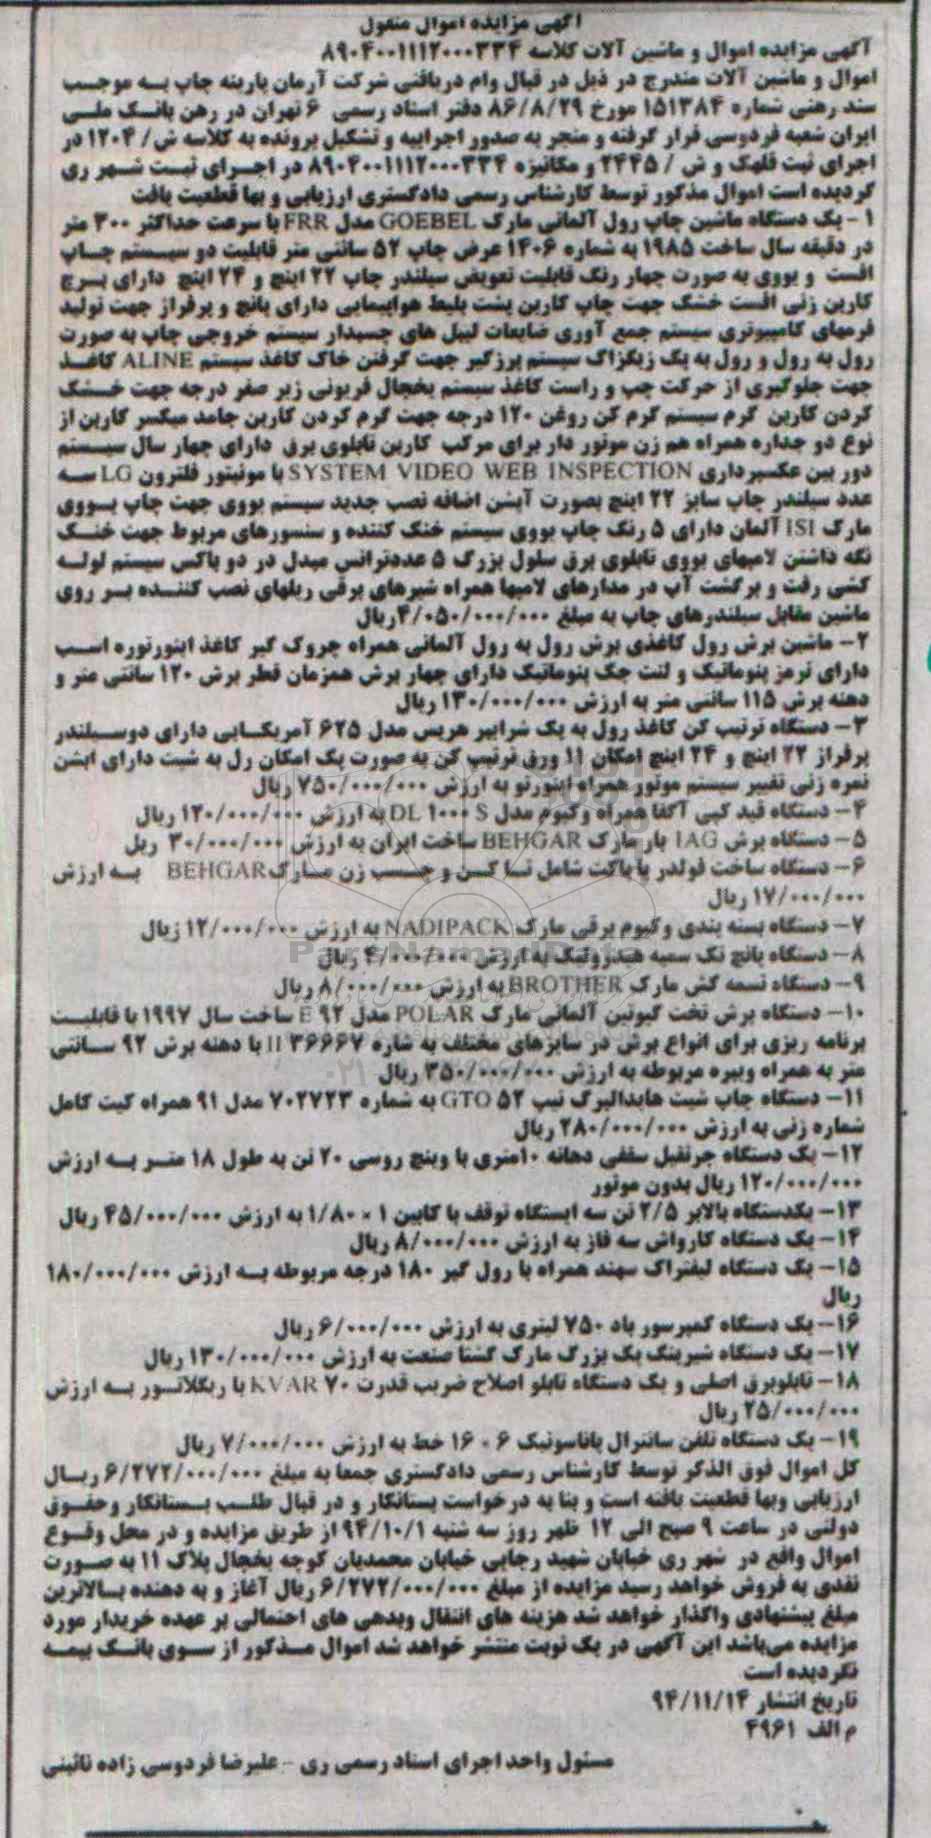 آگهی مزایده اموال منقول
آگهی مزایده اموال و ماشین آلات کلاسه ۸۹۰۴۰۰۱۱۱۲۰۰۰۳۳۴
اموال و ماشین آلات مندرج در ذیل در قبال وام دریافتی شرکت آرمان پارینه چاپ به موجب
سند رهنی شماره ۱۵۱۳۸۴ مورخ ۸۶/۸/۲۹ دفتر اسناد رسمی ۶ تهران در رهن بانک ملی
ایران شعبه فردوسی قرار گرفته و منجر به صدور اجراییه و تشکیل پرونده به کلاسه ش/ ۱۲۰۴ در
اجرای ثبت قلهک و ش / ۲۴۴۵ و مکانیزه ۸۹۰۴۰۰۱۱۱۲۰۰۰۳۳۴ در اجرای ثبت شهر ری
گردیده است اموال مذکور توسط کارشناس رسمی دادگستری ارزیابی و بها قطعیت یافت
۱- یک دستگاه ماشین چاپ رول آلمانی مارک GOEBEL مدل FRR با سرعت حداکثر ۳۰۰ متر
در دقیقه سال ساخت ۱۹۸۵ به شماره ۱۴۰۶ عرض چاپ ۵۲ سانتی متر قابلیت دو سیستم چاپ
افست و یووی به صورت چهار رنگ قابلیت تعویض سیلندر چاپ ۲۲ اینچ و ۲۴ اینچ دارای برج
کاربن زنی افست خشک جهت چاپ کاربن پشت بلیط هواپیمایی دارای پانچ و پرفراز جهت تولید
فرمهای کامپیوتری سیستم جمع آوری ضایعات لیبل های چسبدار سیستم خروجی چاپ به صورت
رول به رول و رول به پک زیگزاک سیستم پرزگیر جهت گرفتن خاک کاغذ سیستم ALINE کاغذ
جهت جلوگیری از حرکت چپ و راست کاغذ سیستم یخچال فریونی زیر صفر درجه جهت خشک
کردن کاربن گرم سیستم گرم کن روغن ۱۲۰ درجه جهت گرم کردن کاربن جامد میکسر کاربن از
نوع دو جداره همراه هم زن موتور دار برای مرکب کاربن تابلوی برق دارای چهار سال سیستم
دور بین عکسبرداری SYSTEM VIDEO WEB INSPECTION با مونیتور فلترون LG سه
عدد سیلندر چاپ سایز ۲۲ اینچ بصورت آپشن اضافه نصب جدید سیستم یووی جهت چاپ یووی
مارک ISI آلمان دارای ۵ رنگ چاپ یووی سیستم خنک کننده و سنسورهای مربوط جهت خنک
نگه داشتن لامپهای یووی تابلوی برق سلول بزرگ ۵ عددترانس مبدل در دو باکس سیستم لوله
کشی رفت و برگشت آب در مدارهای لامپها همراه شیرهای برقی ریلهای نصب کننده بر روی
ماشین مقابل سیلندرهای چاپ به مبلغ ۴/۰۵۰/۰۰۰/۰۰۰ ریال
۲- ماشین برش رول کاغذی برش رول به رول آلمانی همراه چروک گیر کاغذ اینورتوره اسب
دارای ترمز پنوماتیک و لنت جک پنوماتیک دارای چهار برش همزمان قطر برش ۱۲۰ سانتی متر و
دهنه برش ۱۱۵ سانتی متر به ارزش ۱۳۰/۰۰۰/۰۰۰ ریال
۳- دستگاه ترتیب کن کاغذ رول به پک شرابیر هریس مدل ۶۲۵ آمریکایی دارای دوسیلندر
پرفراز ۲۲ اینچ و ۲۴ اینچ امکان ۱۱ ورق ترتیب کن به صورت پک امکان رل به شیت دارای آپشن
نمره زنی تغییر سیستم موتور همراه اینورتو به ارزش ۷۵۰/۰۰۰/۰۰۰ ریال
۴- دستگاه قید کپی آگفا همراه وکیوم مدل DL 1000 S به ارزش ۱۲۰/۰۰۰/۰۰۰ ریال
۵- دستگاه برش IAG بار مارک BEHGAR ساخت ایران به ارزش ۳۰/۰۰۰/۰۰۰ ریل
۶- دستگاه ساخت فولدر یا پاکت شامل تا کن و چسب زن مارک BEHGAR به ارزش
۱۷/۰۰۰/۰۰۰ ریال
۷- دستگاه بسته بندی وکیوم برقی مارک NADIPACK به ارزش ۱۲/۰۰۰/۰۰۰ ریال
۸- دستگاه پانچ تک سمبه هیدرولیک به ارزش ۴/۰۰۰/۰۰۰ ریال
۹- دستگاه تسمه کش مارک BROTHER به ارزش ۸/۰۰۰/۰۰۰ ریال
۱۰- دستگاه برش تخت گیوتین آلمانی مارک POLAR مدل E ۹۲ ساخت سال ۱۹۹۷ با قابلیت
برنامه ریزی برای انواع برش در سایزهای مختلف به شاره ۳۶۶۶۷ II با دهنه برش ۹۲ سانتی
متر به همراه ویبره مربوطه به ارزش ۳۵۰/۰۰۰/۰۰۰ ریال
۱۱- دستگاه چاپ شیت هایدالبرگ تیپ GTO ۵۲ به شماره ۷۰۲۷۲۳ مدل ۹۱ همراه کیت کامل
شماره زنی به ارزش ۲۸۰/۰۰۰/۰۰۰ ریال
۱۲- یک دستگاه جرثقیل سقفی دهانه ۱۰متری با وینچ روسی ۲۰ تن به طول ۱۸ متر به ارزش
۱۲۰/۰۰۰/۰۰۰ ریال بدون موتور
۱۳- یکدستگاه بالابر ۲/۵ تن سه ایستگاه توقف با کابین ۱ × ۱/۸۰ به ارزش ۴۵/۰۰۰/۰۰۰ ریال
۱۴- یک دستگاه کارواش سه فاز به ارزش ۸/۰۰۰/۰۰۰ ریال
۱۵- یک دستگاه لیفتراک سهند همراه با رول گیر ۱۸۰ درجه مربوطه به ارزش ۱۸۰/۰۰۰/۰۰۰
ریال
۱۶- یک دستگاه کمپرسور باد ۷۵۰ لیتری به ارزش ۶/۰۰۰/۰۰۰ ریال
۱۷- یک دستگاه شیرینک پک بزرگ مارک گشتا صنعت به ارزش ۱۳۰/۰۰۰/۰۰۰ ریال
۱۸- تابلوبرق اصلی و یک دستگاه تابلو اصلاح ضریب قدرت KVAR ۷۰ با رگلاتور به ارزش
۲۵/۰۰۰/۰۰۰ ریال
۱۹- یک دستگاه تلفن سانترال پاناسونیک ۶ - ۱۶ خط به ارزش ۷/۰۰۰/۰۰۰ ریال
کل اموال فوق الذکر توسط کارشناس رسمی دادگستری جمعا به مبلغ ۶/۲۷۲/۰۰۰/۰۰۰ ریال
ارزیابی وبها قطعیت یافته است و بنا به درخواست بستانکار و در قبال طلب بستانکار وحقوق
دولتی در ساعت ۹ صبح الی ۱۲ ظهر روز سه شنبه ۹۴/۱۰/۱ از طریق مزایده و در محل وقوع
اموال واقع در شهر ری خیابان شهید رجایی خیابان محمدیان کوچه یخچال پلاک ۱۱ به صورت
نقدی به فروش خواهد رسید مزایده از مبلغ ۶/۲۷۲/۰۰۰/۰۰۰ ریال آغاز و به دهنده بالاترین
مبلغ پیشنهادی واگذار خواهد شد هزینه های انتقال وبدهی های احتمالی بر عهده خریدار مورد
مزایده می‌باشد این آگهی در یک نوبت منتشر خواهد شد اموال مذکور از سوی بانک بیمه
نگردیده است
تاریخ انتشار ۹۴/۱۱/۱۴
م الف ۴۹۶۱
مسئول واحد اجرای اسناد رسمی ری - علیرضا فردوسی زاده نائینی